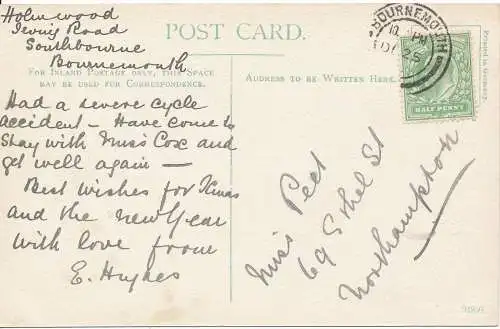 Holmwood
Irving Road
Southbourne
Bournemouth
POST CARD.
FOR INLAND POSTAGE ONLY, THIS SPACE
MAY BE USED FOR CORRESPONDENCE.
ADDRESS TO BE WRITTEN HERE.
Printed in Germany.
BOURNEMOUTH
HALF PENNY
Had a severe cycle
accident – Have come to
stay with Miss Cox and
get well again –
Best wishes for Xmas
and the new Year
with love from
E. Hughes
Miss Peet
69 Ethel St
Northampton